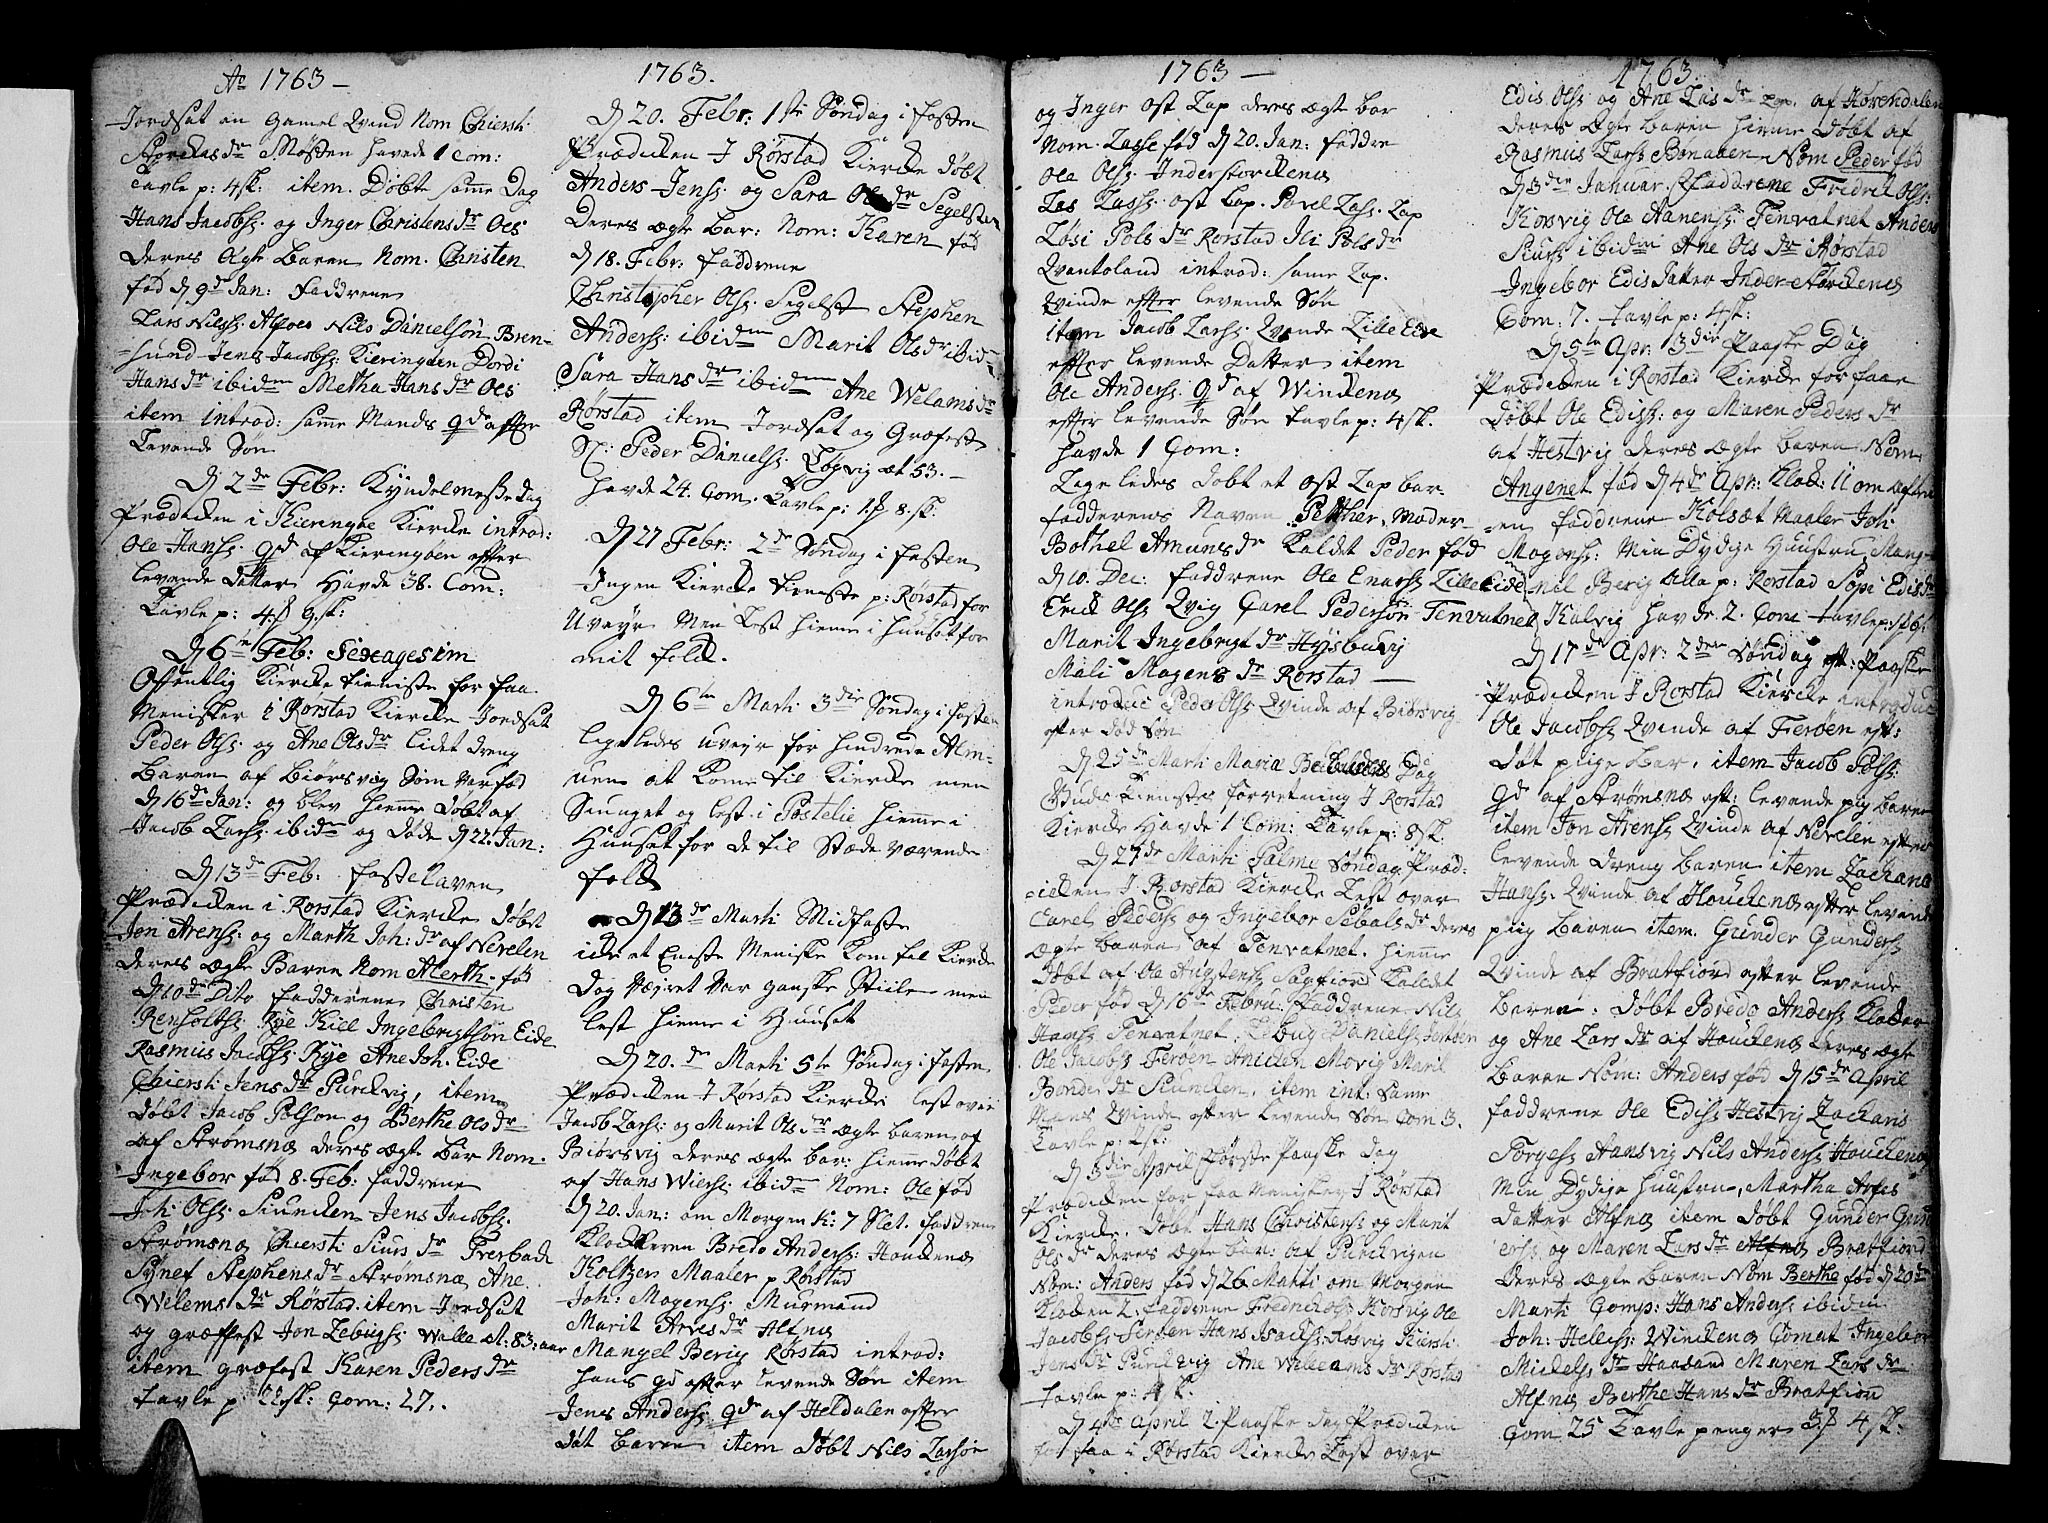 Ao 1763 –
Jordsat en gamel Qvind Nom Chiersti
dr Møsten havde 1 Com:
Tavle p: 4sk: item. Døbt samme Dag
Hans Jacobs: og Inger Christensdr Oes
deres Ægte Baren Nom. Christen
fød d 9d Jan: Faddrene
Lars Nilss: Alfoes Nils Danielsøn Bren-
=sund Jens Jacobs: Kieringøen Dordi
Hansdr ibidem Metha Hansdr Oes
item introd: samme Mands qd efter
Levende Søn
D 2de Febr: Kyndelmesse dag
Prædicken i Kieringøe Kiercke introd:
Ole Hans: qd af Kieringøen effter
levende Datter Havde 38. Com:
Tavle p: 9.sk:
D 6te Feb: Sexagesim
Offentlig Kircke tieniste for faa
Menisker i Rørstad Kiercke Jordsat
Peder Ols: og Ane Olsdr lidet dreng
Baren af Biørsvig som var fød
D 16de Jan: og blev hieme døbt af
Jacob Larss: ibidm og døde d 22. Jan:
D 13de Feb: Fastelaven
Prædicken i Rørstad Kiercke døbt
Jon Arens: og Marth Joh: dr af Nevelen
deres ægte Baren Nom Alerth. fød
D 10de Dito Fadderene Christen
Renholts: Rye Kiel Ingebrigtsøn Eide
Rasmus Jacobs: Rye Ane Joh: Eide
Chiersti Jens dr Purckvig, item
døbt Jacob Polsøn og Berthe Olsdr
af Strømsnæs deres ægte bar Nom.
Ingebor fød 8. Feb: faddrene
Joh: Ols: Siuncken Jens Jacobs:
Strømsnæs Chiersti Siurs dr
Synef Stephensdr Strømsnæs Ane
Welems dr Rørstad. item Jordsat
og græffest Jon Zebuhs: Walle æt: 83: aar
item græfest Karen Peders dr
tavle p: 22sk: Com: 27.
1763.
D 20. Febr: 1ste Søndag i fasten
Prædicken i Rørstad Kiercke døbt
Anders Jenss: og Sara Olsdr Segelsten
Deres ægte bar: Nom: Karen fød
d 18. Febr: faddrene
Christopher Ols: Segelst Stephen
Anders: ibidem Marit Olsdr ibid
Sara Hans dr ibidem Ane Welams dr
Rørstad item Jordsat og Græfest
Peder Daniels: Løgvig æt 53.–
havde 24. Com. Tavle p: 8.sk:
D 27 Febr: 2de Søndag i fasten
Ingen Kiercke tieniste p: Rørstad for
Uveyr Men Lest hieme i Huuset for
mit folck.
D 6te Marti 3die Søndag i fasten
ligeledes uveyr for hindrede Alm-
uen at Kome til Kiercke men
Siunget og lest i Postelie hieme i
Huuset for de til stæde værende
folck
D 13de Marti Midfaste
icke et Eneste Meniske Kom til Kiercke
Dog Veyret var ganske Stille men
lest hieme i Huuset
D 20.de Marti 5te Søndag i fasten
Prædicken i Rørstad Kiercke lest over
Jacob Larss: og Marit Ols dr ægte baren af
Biørsvig deres ægte bar: hieme døbt
af Hans Wiers: ibidm Nom: Ole fød
D 20. Jan: om Morgen K: 7 Slet. faddrene
Klockeren Bredo Anders: Houcknæs
Koltzen Maaler p Rørstad
Joh: Mogens: Murmand
Marit Arvesdr Alfnæs
Mangel Berig Rørstad introd:
hans qd effter Levende Søn item
Jens Anders: qd af Heldalen effter
døt baren item døbt Nils Larsøn
1763 –
og Inger Ost Lap deres ægte bar
Nom. Lasse fød d 20. Jan: faddre
Ole Ols: Inderstorcknæs
Las Lass: ost Lap. Povel Lass: Lap
Løsi Pols dr Rorstad Ili Pols dr
Qvantoland introd: same Lap.
Qvinde effter levende Søn
item Jacob Larss: Qvinde Lille Eide
effter levende Datter item
Ole Anders: qd af Windenæs
effter levende Søn tavle p: 4sk.
havde 1 Com:
Lige ledes døbt et ost Lap bar:
fadderens Naven Petther, Moder
Bothel Amunds dr Kaldet Peder fød
D 10. Dec: faddrene Ole Enars: Lille eide
Erick Ols: Qvig Carel Pedersøn Tenvatnet
Marit Ingebrigt dr Høysbuvig
Mali Mogens dr Rorstad –
introduc Peder Ols: Qvinde af Biørsvig
efter død Søn
D 25de Marti Mariæ Bebudelses Dag
Guds tienistes forretning i Rorstad
Kiercke Havde 1 Com: Tavle p: 8sk.
D 27de Marti Palme Søndag Præd:
=icken i Rorstad Kiercke Lest over
Carel Peders: og Ingebor Sebalsdr deres
ægte baren af Tenvatnet. hieme
døbt af Ole Augstens: Sagfiord Kaldet
Peder fød D 16de Febru: faddrene Nils
Hans: Tenvatnet, Zebug Daniels:
Ole Jacobs: Feroen Anicken Movig Marit
Bonde dr Siuncken, item int: Same
Mans Qvinde efter levende Søn Com 3.
Tavle p:
D 3die April Første Paaske dag
Prædicken for faa Menisker i Rørstad
Kiercke. døbt Hans Christens: og Marit
Ols dr deres ægte bar: af Purckvigen
Nom: Anders fød D 26 Marti om Morgen
Klocken 2: faddrene Fredrick Ols: Korsvig Ole
Jacobs: Feroen Hans Isacks: Kosvig Kiersti
Jens dr Purckvig Ane Willams dr Rorstad
tavle p: sk.
D 4de April 2. Paaske dag Prædicken
for faa i Rorstad Kiercke Lest over
1763.
Edis Ols: og Ane Las dr Lap. af Hørendalen
deres Ægte Baren hieme døbt af
Rasmus Larss: Bonaben Nom Peder fød
D 3die Januar. Faddrene Fridrik Ols:
Korsvig Ole Aanens: Tenvatnet Anders
Siurs: ibidem Ane Ols dr Rørstad
Ingebor Edis Datter Inder Storcknæs
Com: 7. tavle p: 4sk:
D 5te Apr: 3die Paaske Dag
Prædicken i Rorstad Kiercke for faae
døbt Ole Edis: og Maren Peders dr
af Hestvig deres ægte baren Nom
Angenet fød D 4de Apr: Klock: 11 om afften
=en faddrene Kolsæt Maaler Joh:
Mogens: Min Dydige Huustru, Mang-
nel Berig alle p: Rorstad Sopi Edisdr
Kalvig havde 2. Com tavle p:
D 17de Apr: 2den Søndag eft: Paaske
Prædicken i Rorstad Kiercke introduc
Ole Jacobs: Qvinde af Feroen eft:
døt piige bar, item Jacob Pols:
qd af Strømsnæs eft: levende pig baren
item Jon Arens: Qvinde af Nevelen effter
levende dreng baren item Zacharias
Hans: Qvinde af Houcknæs effter levende
piig baren item. Gunder Gunders:
Qvinde af Bratfiord efter levende
baren: døbt Bredo Anders: Klocker
og Ane Lars dr af Houcknæs deres ægte
baren Nom: Anders fød D 15de April
faddrene Ole Edis: Hestvig Zacharis
Torges: Aansvig Nils Anders: Houcknæs
Min Dydige Huustru, Martha Arfes
datter Alfnæs item døbt Gunder Gun
ers: og Maren Lars dr Alfnæs Bratfiord
deres ægte baren Nom Berthe fød D 20de
Marti Comp: Hans Anders: ibidm
Joh: Hellics: Windenæs Gomat Ingebor
Mickels dr Haasand Maren Lars dr
Alfnæs Berthe Hans dr Bratfiord
Com 25 Tavle penger 4 sk: